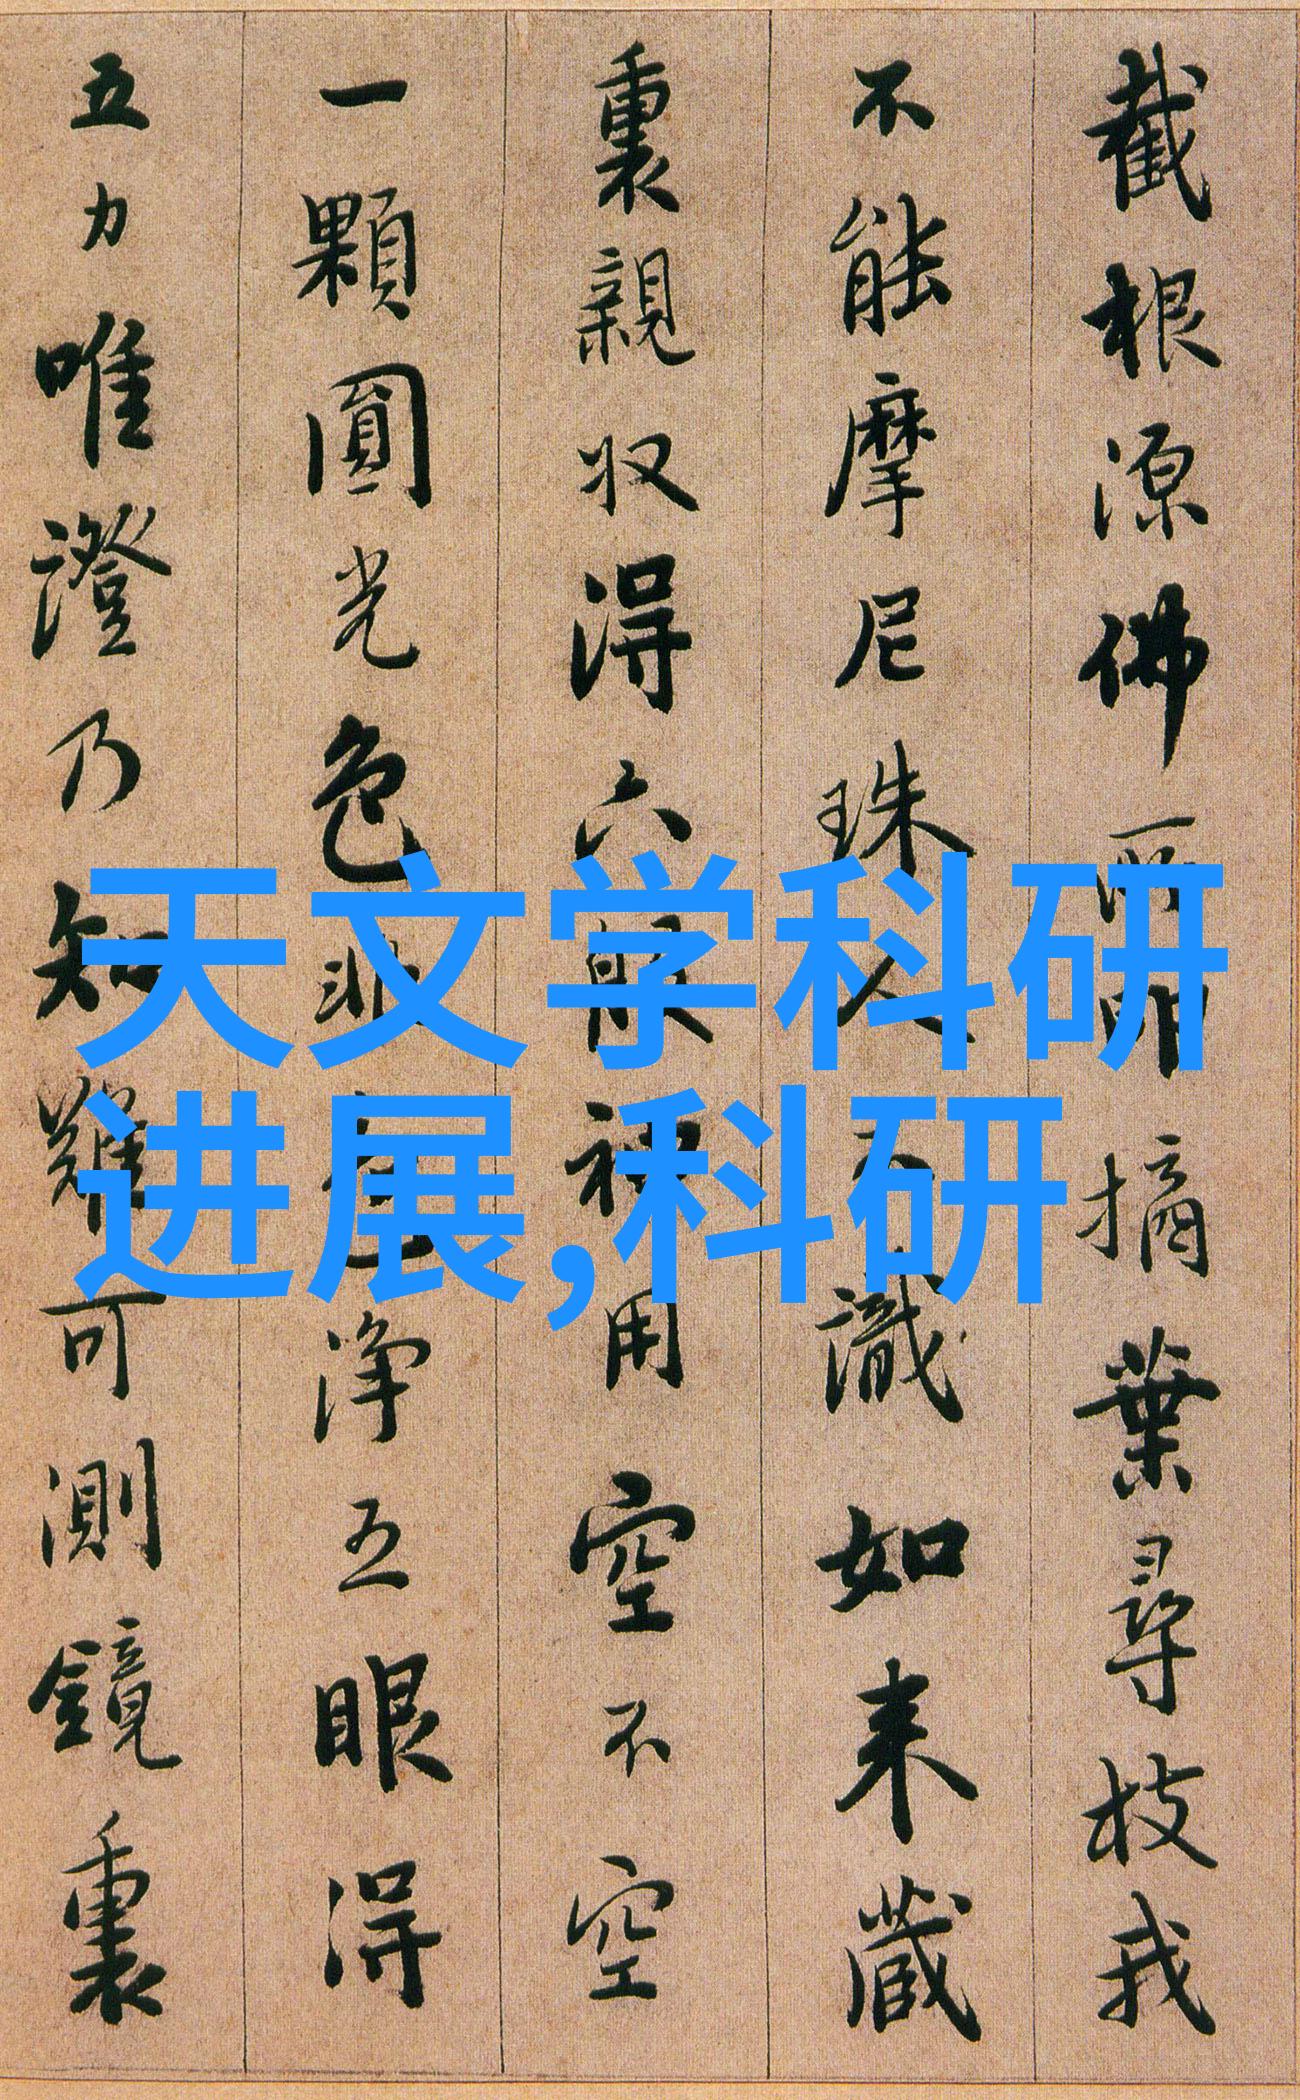 截根源佛所印摘葉尋枝我
不能摩尼珠人不識如来藏
裏親収得六般神用空不空
一顆圓光色非色淨五眼得
五力唯證乃知難可測鏡裏
天文学科研
进展,科研